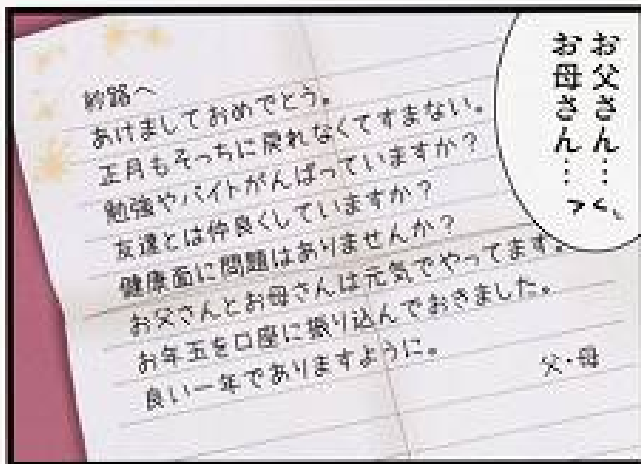 お父さん…
お母さん…
紗路へ
あけましておめでとう。
正月もそっちに戻れなくてすまない。
勉強やバイトがんばっていますか？
友達とは仲良くしていますか？
健康面に問題はありませんか？
お父さんとお母さんは元気でやってます。
お年玉を口座に振り込んでおきました。
良い一年でありますように。
父・母